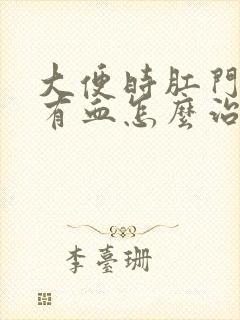 大便時肛門
有血怎麼治
李臺珊